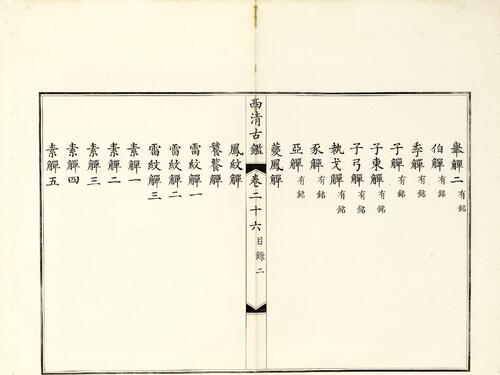 舉觶二有銘
伯觶有銘
季觶有銘
子觶有銘
子東觶有銘
子弓觶有銘
執戈觶有銘
豕觶有銘
亞觶有銘
夔鳳觶
西清古鑑 卷二十六 目錄 二
鳳紋觶
饕餮觶
雷紋觶一
雷紋觶二
雷紋觶三
素觶一
素觶二
素觶三
素觶四
素觶五